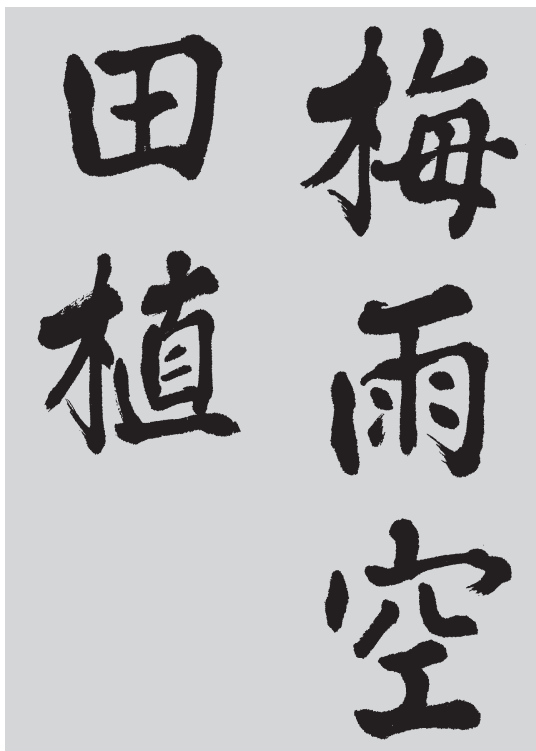 梅雨空
田植